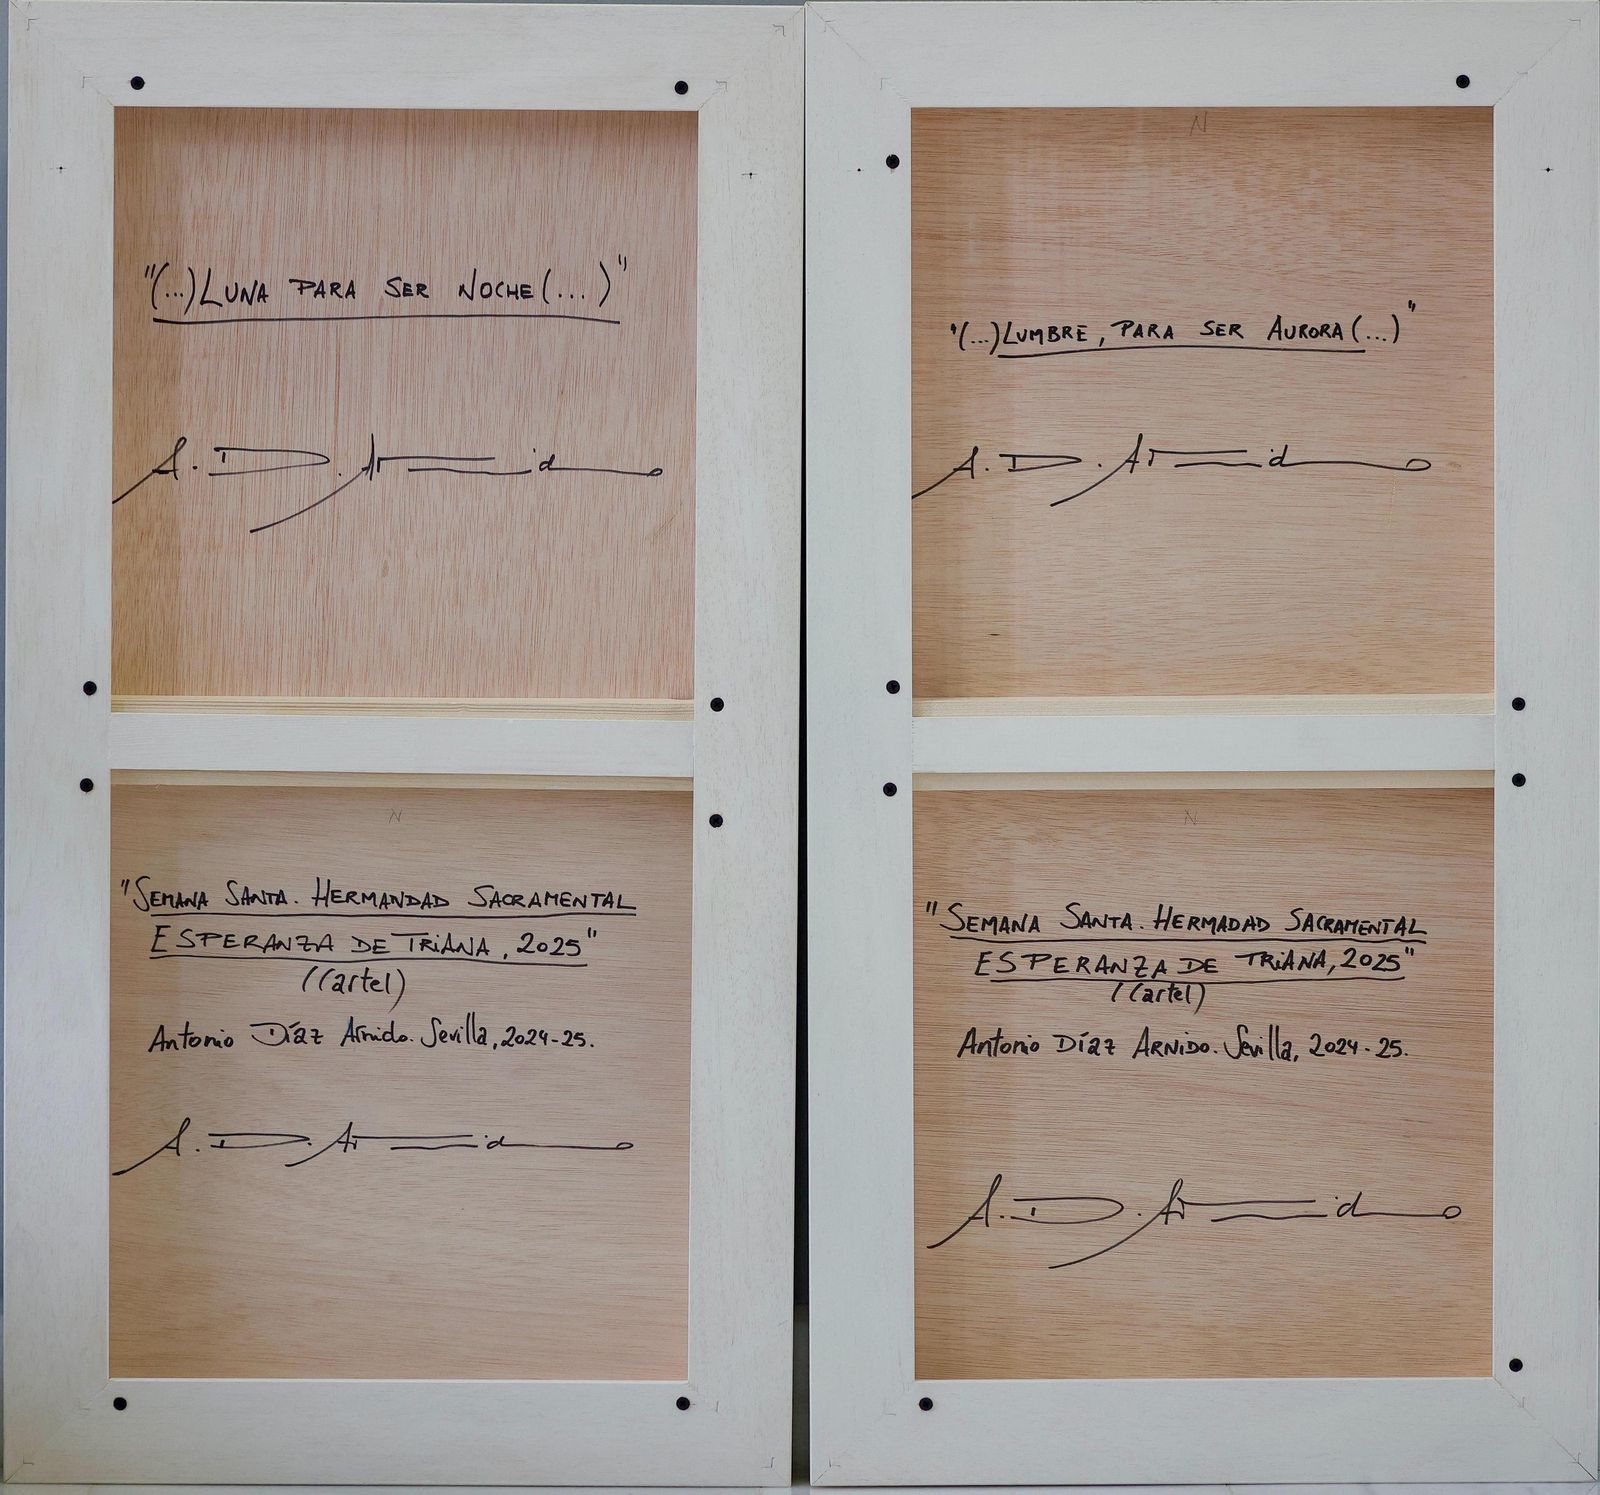 "(...) LUNA PARA SER NOCHE (...)"
A. D. Arnido
"SEMANA SANTA. HERMANDAD SACRAMENTAL
ESPERANZA DE TRIANA, 2025"
(Cartel)
Antonio Díaz Arnido. Sevilla, 2024-25.
A. D. Arnido
N
"(...) LUMBRE, PARA SER AURORA (...)"
A. D. Arnido
N
"SEMANA SANTA. HERMADAD SACRAMENTAL
ESPERANZA DE TRIANA, 2025"
(Cartel)
Antonio Díaz ARNIDO. Sevilla, 2024-25.
A. D. Arnido